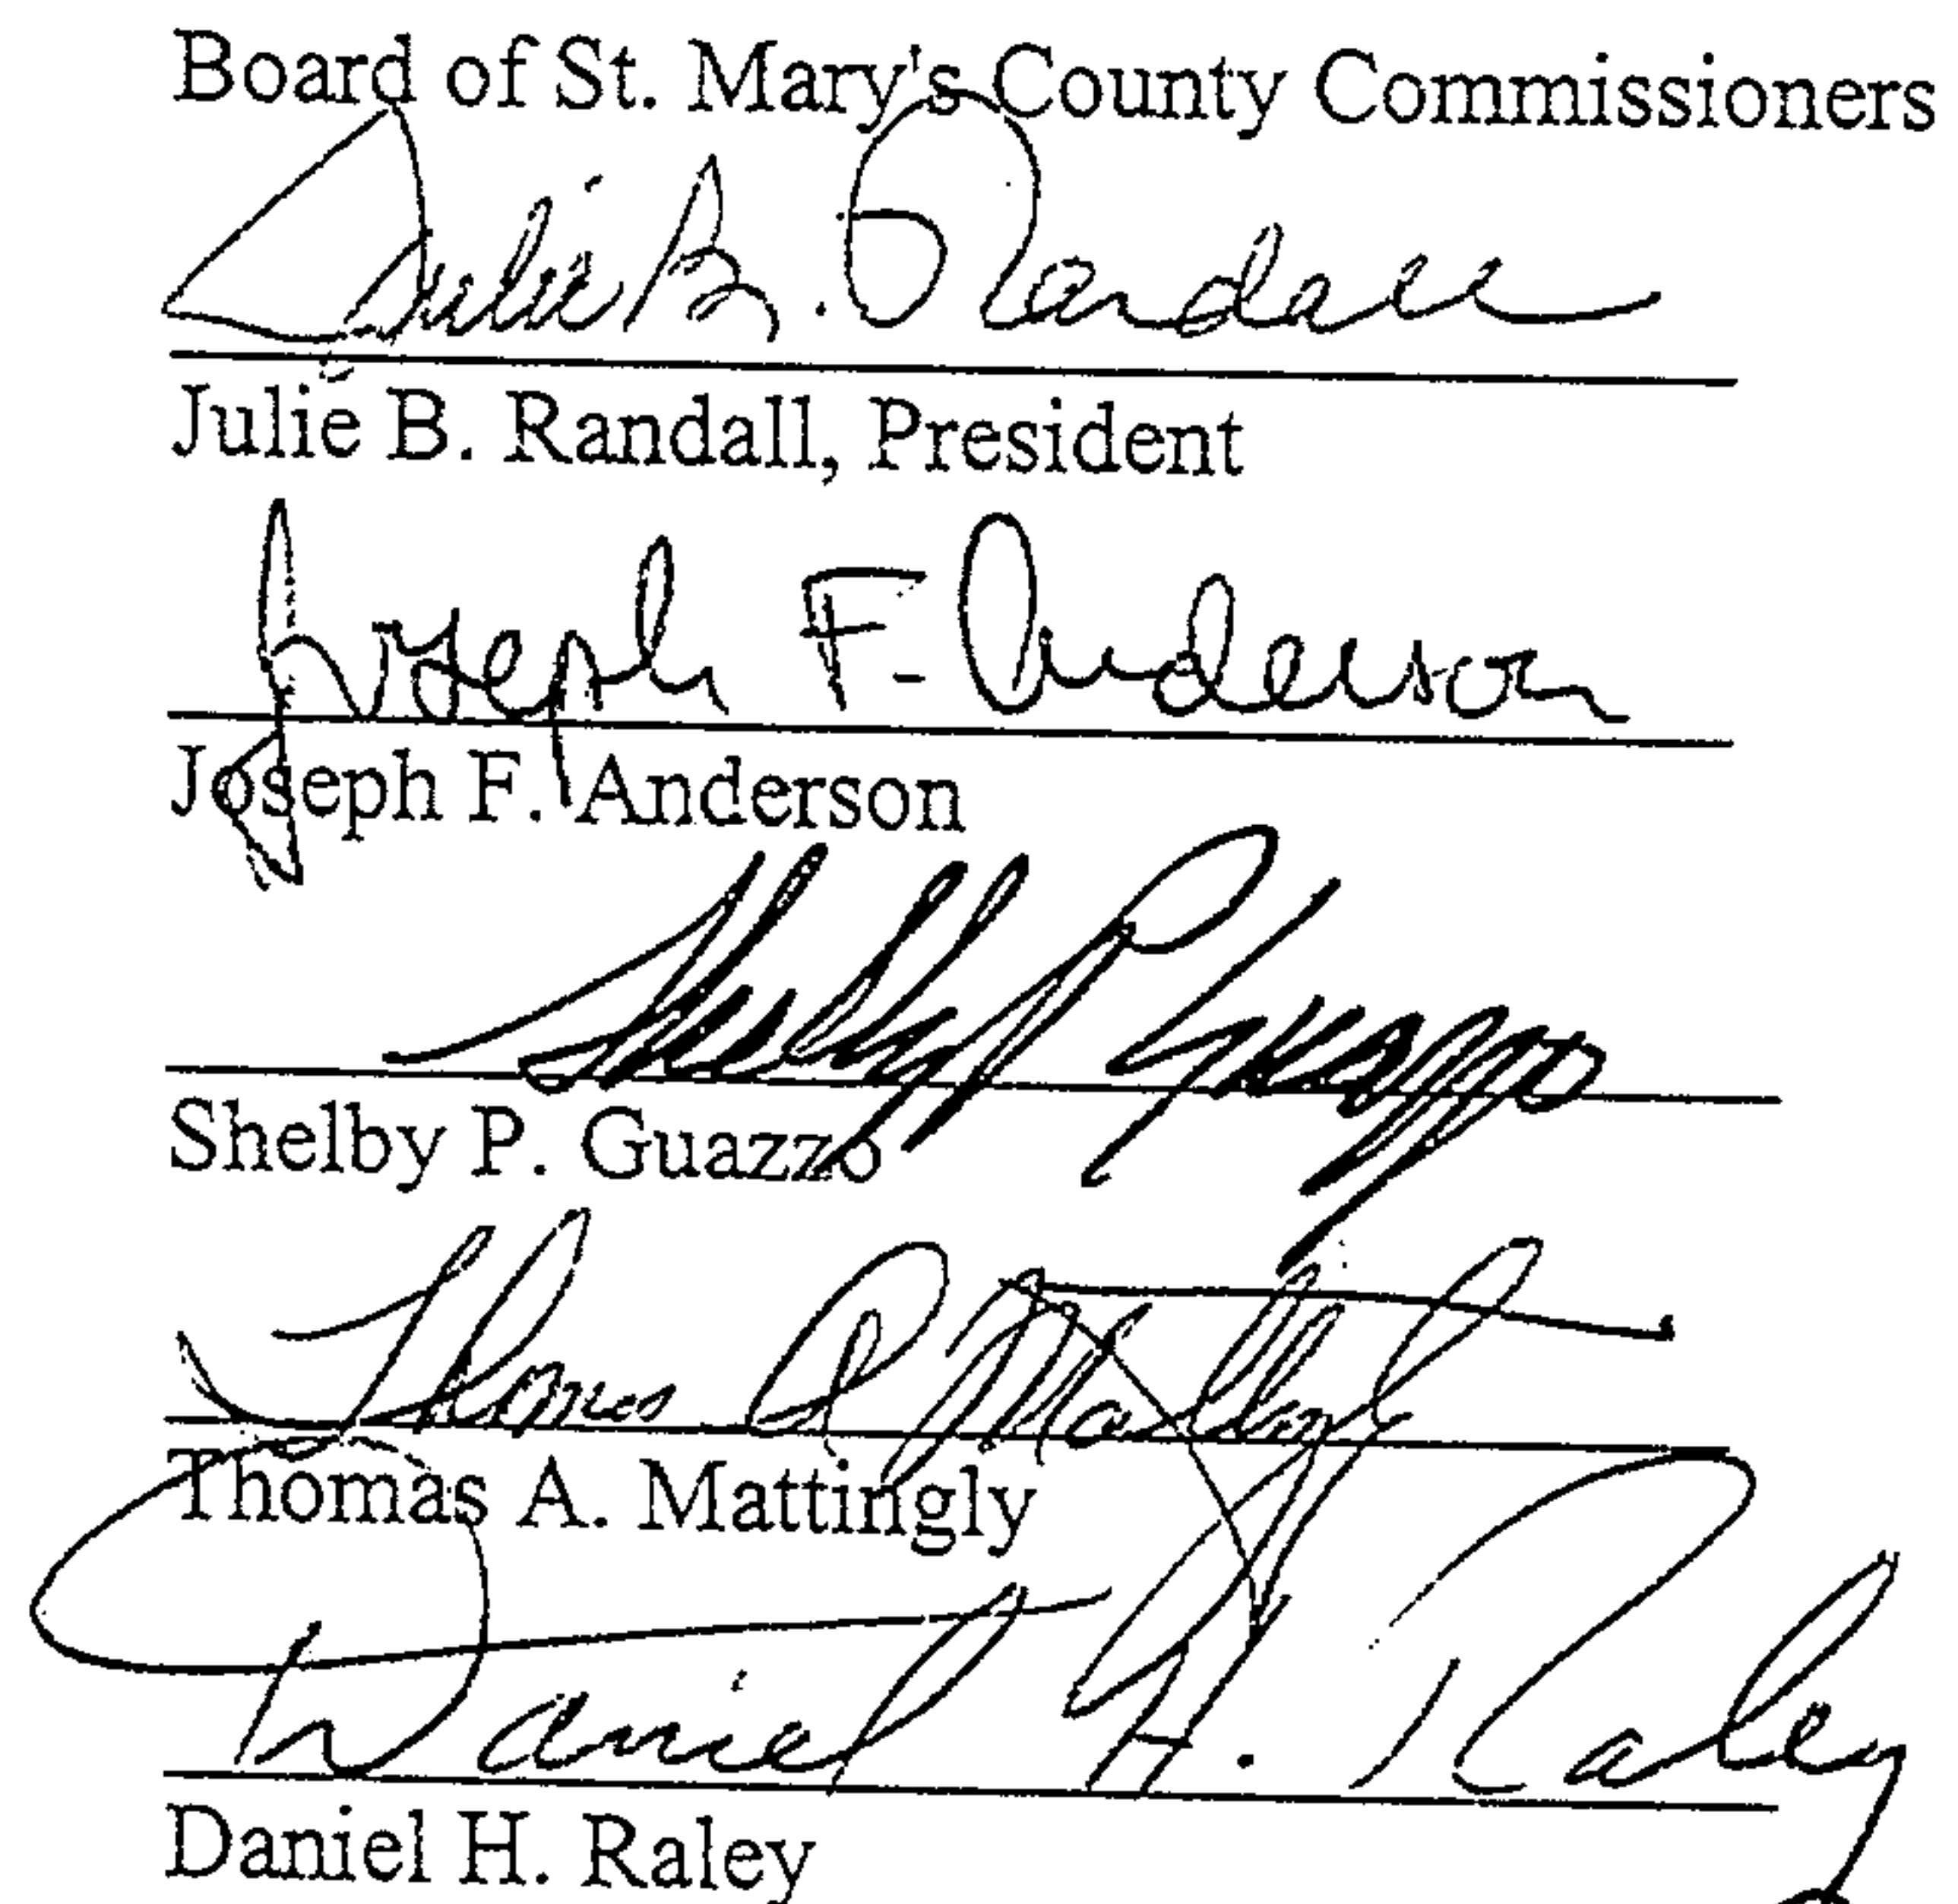 Board of St. Mary's County Commissioners
Julie B. Randall
Julie B. Randall, President
Joseph F. Anderson
Joseph F. Anderson
Shelby P. Guazzo
Shelby P. Guazzo
Thomas A. Mattingly
Thomas A. Mattingly
Daniel H. Raley
Daniel H. Raley